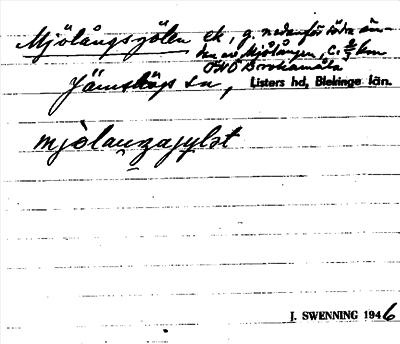 Mjölångsgölen ek, g. nedanför södra än-
den av Mjölången, c:a 2/3 km
ONO Brokamåla
Jämshögs sn, Listers hd, Blekinge län.
mjòlaŋgajylst
J. SWENNING 1946